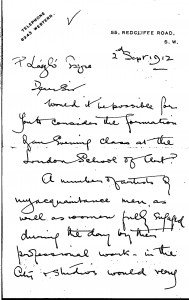 TELEPHONE
6048 WESTERN.
55, REDCLIFFE ROAD,
S. W.
2nd Sept. 1912
P. László Esqre
Dear Sir
Would it be possible for
you to consider the formation
of an Evening class at the
London School of Art?
A number of artists of
my acquaintance men, as
well as women fully
during the day by their
professional work - in the
City & Studios would very